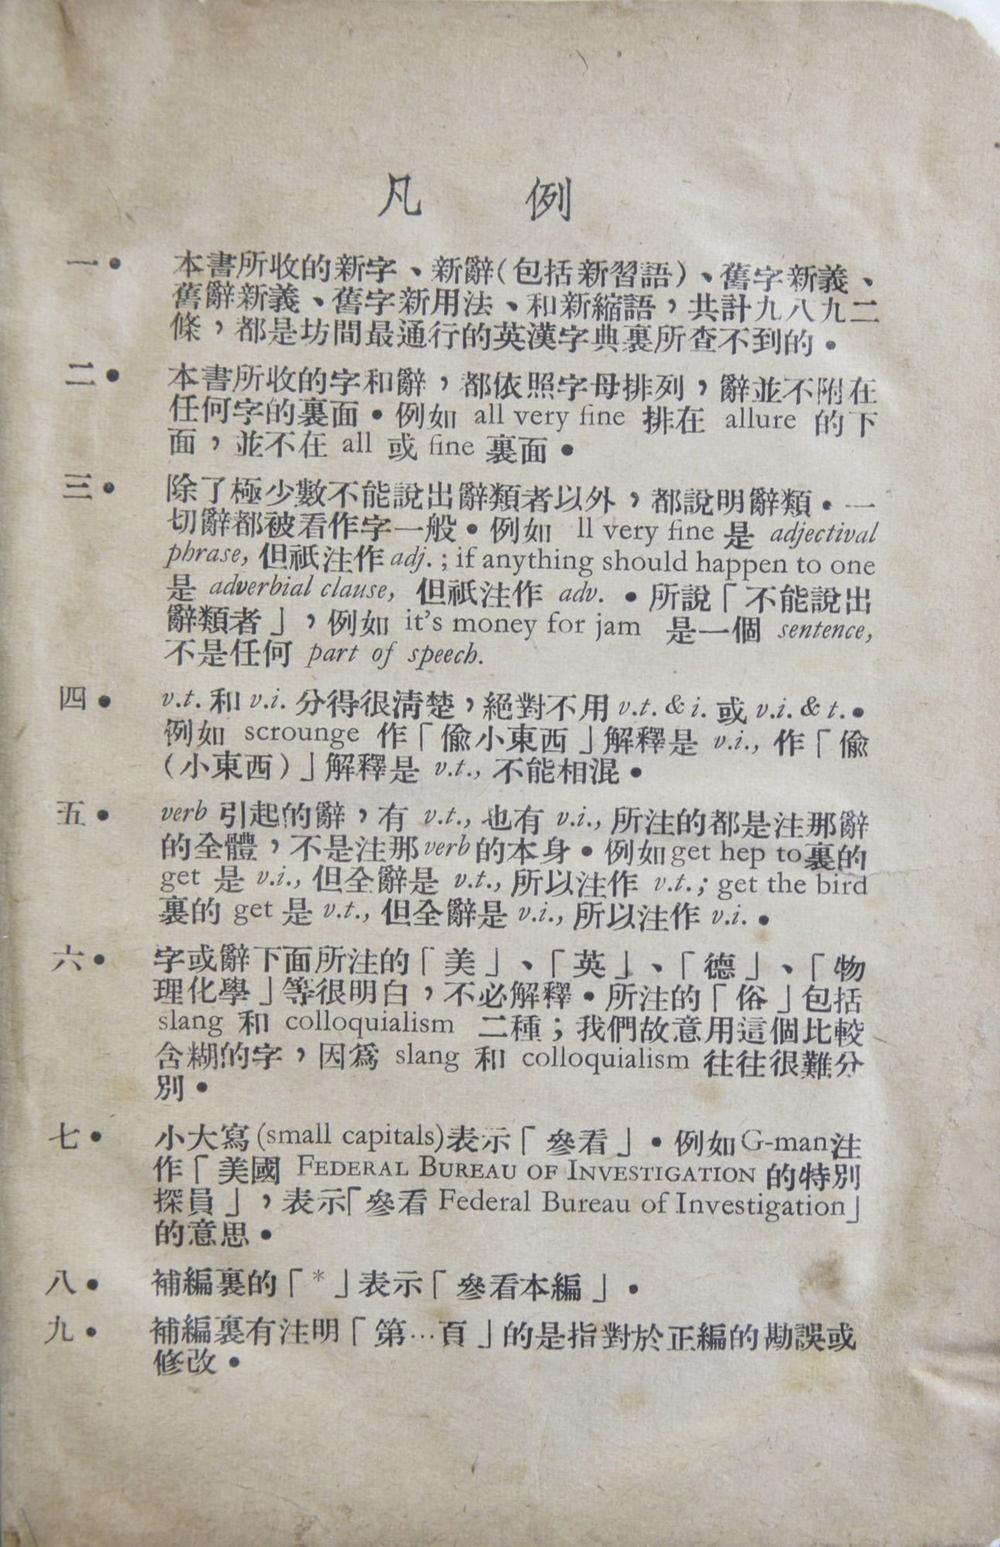 凡 例
一• 本書所收的新字、新辭(包括新習語)、舊字新義、
舊辭新義、舊字新用法、和新縮語，共計九八九二
條，都是坊間最通行的英漢字典裏所查不到的•
二• 本書所收的字和辭，都依照字母排列，辭並不附在
任何字的裏面•例如 all very fine 排在 allure 的下
面，並不在 all 或 fine 裏面•
三• 除了極少數不能說出辭類者以外，都說明辭類•一
切辭都被看作字一般•例如 ll very fine 是 adjectival
phrase, 但祇注作 adj. ; if anything should happen to one
是 adverbial clause, 但祇注作 adv. •所說「不能說出
辭類者」，例如 it's money for jam 是一個 sentence,
不是任何 part of speech.
四• v.t. 和 v.i. 分得很清楚，絕對不用 v.t. & i. 或 v.i. & t.•
例如 scrounge 作「偸小東西」解釋是 v.i., 作「偸
(小東西)」解釋是 v.t., 不能相混•
五• verb 引起的辭，有 v.t., 也有 v.i., 所注的都是注那辭
的全體，不是注那 verb 的本身•例如 get hep to 裏的
get 是 v.i., 但全辭是 v.t., 所以注作 v.t.; get the bird
裏的 get 是 v.t., 但全辭是 v.i., 所以注作 v.i. •
六• 字或辭下面所注的「美」、「英」、「德」、「物
理化學」等很明白，不必解釋•所注的「俗」包括
slang 和 colloquialism 二種；我們故意用這個比較
含糊的字，因爲 slang 和 colloquialism 往往很難分
別•
七• 小大寫(small capitals)表示「參看」•例如 G-man 注
作「美國 FEDERAL BUREAU OF INVESTIGATION 的特別
探員」，表示「參看 Federal Bureau of Investigation」
的意思•
八• 補編裏的「*」表示「參看本編」•
九• 補編裏有注明「第…頁」的是指對於正編的勘誤或
修改•